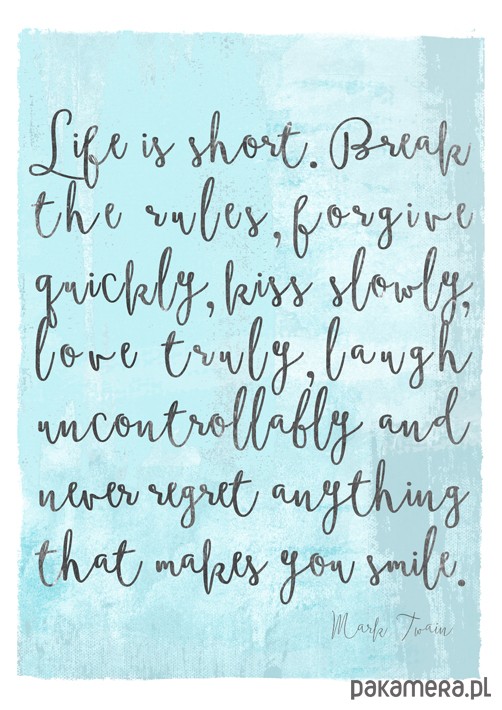 Life is short. Break
the rules, forgive
quickly, kiss slowly,
love truly, laugh
uncontrollably and
never regret anything
that makes you smile.
Mark Twain
pakamera.pl